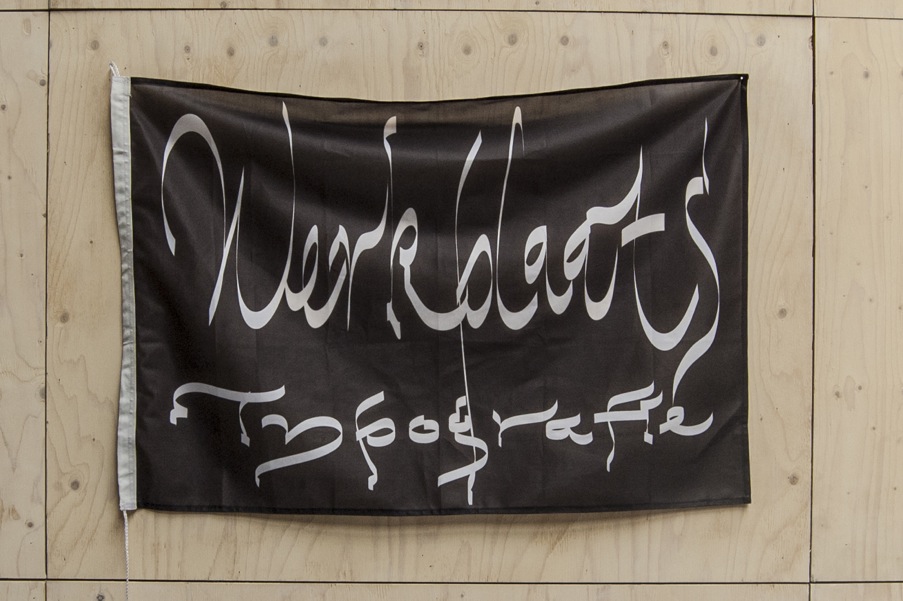 Werkplaats
Typografie